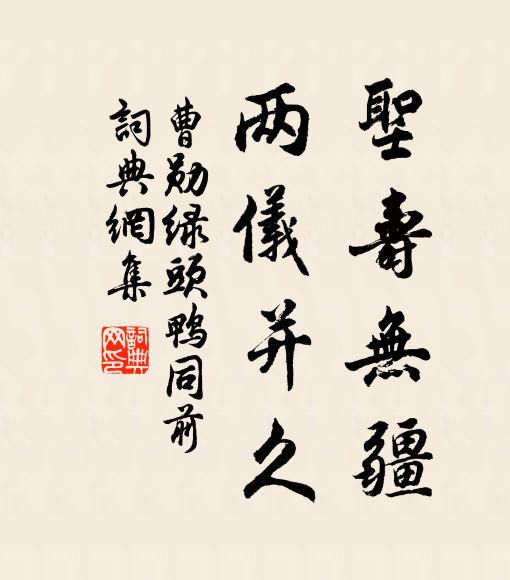 聖壽無疆
两儀并久
曹勋绿頭鴨同前
詞典網集
詞典
网印